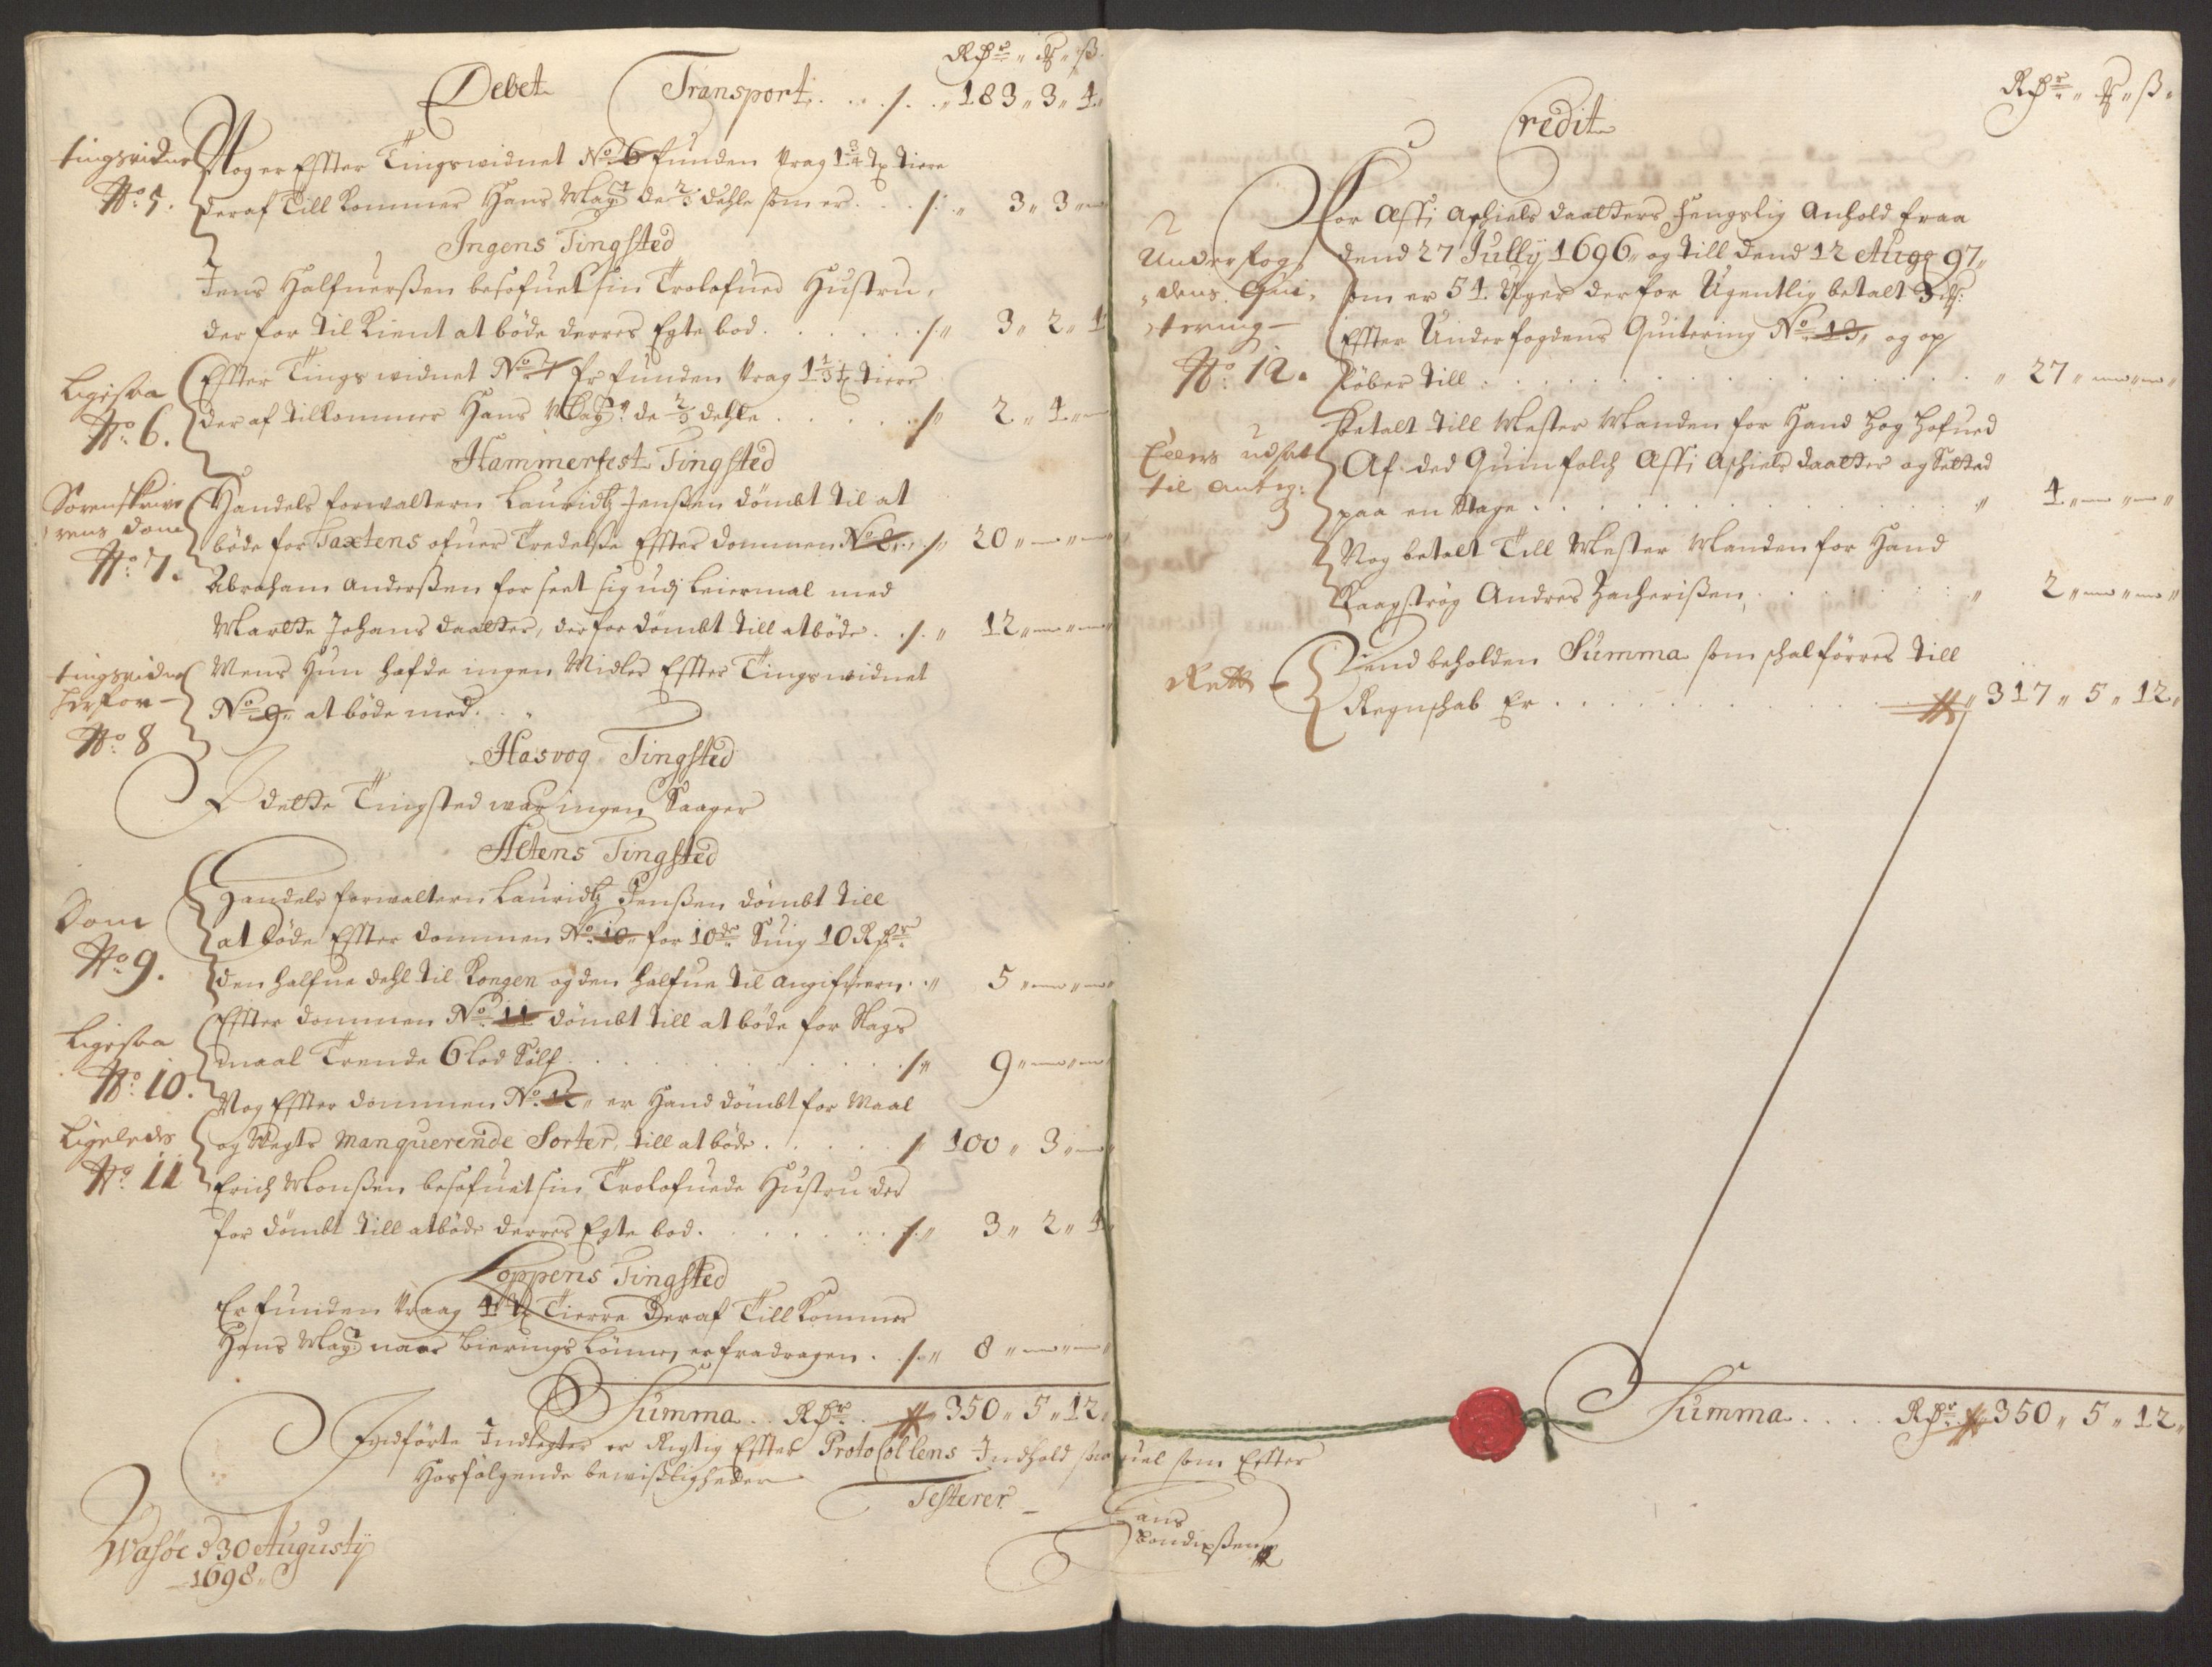 Rdr „ ℳ „ ß.
Debet Transport . . . ./. . „ 183 „ 3 „ 4 „
tingsvidne
No: 5.
Nog er Effter Tingswidnet No 6 funden Vrag 1¾ Tø Tiere
deraf Till Kommer Hans Mayt de ⅔ dehle som er . . ./. „ 3 „ 3 „ —
Ingens Tingsted
Jens Halfuerßen besofuet sin Trolofued Hustru,
derfor til Kient at böde derres Egte bod . . . . . ./. „ 3 „ 2 „ 4
Ligesaa
No: 6.
Effter Tings widnet No 7 Er funden Vrag 1⅓ tø tiere
der af tilkommer Hans Mayt de ⅔ dehle . . . . ./. „ 2 „ 4 „ —
Hammerfest Tingsted
Sorenskrive
rens dom
No: 7.
Handels forwaltern Lauridtz Jenßen dömbt til at
böde for Taxtens ofuer Tredelse Effter dommen No 8 . ./. „ 20 „ — „ —
Abraham Anderßen for seet sig udj Leiermal med
Martte Johans daatter, derfor dömbt till at böde . ./. „ 12 „ — „ —
tingsvidne
herfor —
No: 8
Mens Hun hafde ingen Midler Effter Tingswidnet
No 9 „ at böde med . . „
Hasvog Tingsted
I dette Tingsted war ingen Saager
Altens Tingsted
Dom
No: 9.
Handels forwaltern Lauridtz Jenßen dömbt till
at böde Effter dommen No 10 „ for 10de Suig 10 Rdr
den halfue dehl til Kongen og den halfue til angifueren . „ 5 „ — „ —
Ligesaa
No: 10.
Effter dommen No 11 dömbt till at böde for Slags
maal Trende 6 Lod Sölf . . . . . . . ./. „ 9 „ — „ —
Ligeledis
No: 11
Nog Effter dommen No 12 „ er Hand dömbt for Maal
og Wegts Manquerende Sorter, till at böde . . . . ./. 100 „ 3 „ —
Erich Monßen besofuet sin Trolofuede Hustru der
for dömbt till at böde derres Egte bod . . . . . ./. „ 3 „ 2 „ 4
Loppens Tingsted
Er funden Vraag 4 tø Tierre deraf Till Kommer
Hans Mayt naar biering Lönnen er fradragen . ./. „ 8 „ — „ —
Summa . . Rdr . „ 350 „ 5 „ 12 „
Indförte Indtegter er Rigtig Effter Protocollens Indhold saauel som Effter
Hosfölgende bewißligheder
Testerer
Hans
Wasöe d 30 Augustÿ
1698 „
Rdr „ ℳ „ ß „
Credit
Underfog„
dens Qui„
tering —
No: 12.
For Assi Aschiels daatters fengslig Anhold fraa
dend 27 Jullÿ 1696 „ og till dend 12 Aug: 97 „
som er 54 Uger derfor Ugentlig betalt 3 ℳ:
Effter Underfogdens Quitering No 13, og op
löber till . . . . . . . . . . . . „ 27 „ — „ — „
Betalt till Mester Manden for Hand Hog Hofued
Af ded Quinfolch Assi Aschiels daatter og Setted
paa en Stage . . . . . . . . . . . „ 4 „ — „ — „
Nog betalt Till Mester Manden for Hand
Kaagströg Andres Zacherißen, . . . . . . „ 2 „ — „ — „
Rett —
Dend beholden Summa som schal förres till
Regnschab Er . . . . . . . . . „ 317 „ 5 „ 12 „
Summa . . . . Rdr „ 350 „ 5 „ 12 „